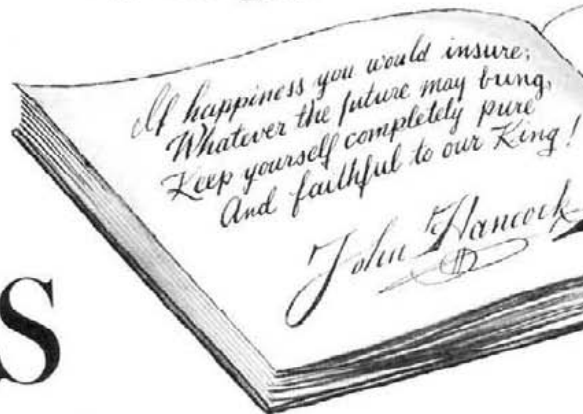 If happiness you would insure;
Whatever the future may bring,
Keep yourself completely pure
And faithful to our King!
John Hancock
S